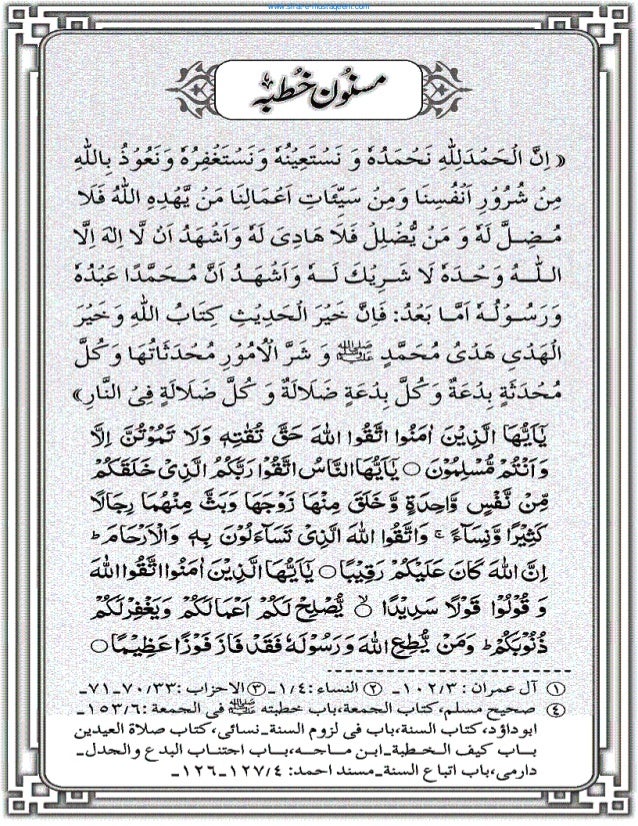 www.sirat-e-mustaqeem.com
مسنون خُطبہ
﴿ اِنَّ الْحَمْدَلِلّٰهِ نَحْمَدُهٗ وَ نَسْتَعِيْنُهٗ وَنَسْتَغْفِرُهٗ وَنَعُوْذُ بِاللّٰهِ
مِنْ شُرُوْرِ اَنْفُسِنَا وَمِنْ سَيِّئَاتِ اَعْمَالِنَا مَنْ يَّهْدِهِ اللّٰهُ فَلَا
مُضِلَّ لَهٗ وَ مَنْ يُّضْلِلْ فَلَا هَادِىَ لَهٗ وَاَشْهَدُ اَنْ لَّا اِلٰهَ اِلَّا
اللّٰهُ وَحْدَهٗ لَا شَرِيْكَ لَهٗ وَاَشْهَدُ اَنَّ مُحَمَّدًا عَبْدُهٗ
وَرَسُوْلُهٗ اَمَّا بَعْدُ: فَاِنَّ خَيْرَ الْحَدِيْثِ كِتَابُ اللّٰهِ وَخَيْرَ
الْهَدْىِ هَدْىُ مُحَمَّدٍ ﷺ وَ شَرَّ الْاُمُوْرِ مُحْدَثَاتُهَا وَكُلَّ
مُحْدَثَةٍ بِدْعَةٌ وَكُلَّ بِدْعَةٍ ضَلَالَةٌ وَ كُلَّ ضَلَالَةٍ فِى النَّارِ﴾
يٰۤاَيُّهَا الَّذِيْنَ اٰمَنُوا اتَّقُوا اللّٰهَ حَقَّ تُقٰتِهٖ وَلَا تَمُوْتُنَّ اِلَّا
وَاَنْتُمْ مُّسْلِمُوْنَ ○ يٰۤاَيُّهَا النَّاسُ اتَّقُوْا رَبَّكُمُ الَّذِىْ خَلَقَكُمْ
مِّنْ نَّفْسٍ وَّاحِدَةٍ وَّخَلَقَ مِنْهَا زَوْجَهَا وَبَثَّ مِنْهُمَا رِجَالًا
كَثِيْرًا وَّنِسَآءً ۚ وَاتَّقُوا اللّٰهَ الَّذِىْ تَسَآءَلُوْنَ بِهٖ وَالْاَرْحَامَ ؕ
اِنَّ اللّٰهَ كَانَ عَلَيْكُمْ رَقِيْبًا○ يٰۤاَيُّهَا الَّذِيْنَ اٰمَنُوا اتَّقُوا اللّٰهَ
وَ قُوْلُوْا قَوْلًا سَدِيْدًا ۙ يُّصْلِحْ لَكُمْ اَعْمَالَكُمْ وَيَغْفِرْلَكُمْ
ذُنُوْبَكُمْ ؕ وَمَنْ يُّطِعِ اللّٰهَ وَرَسُوْلَهٗ فَقَدْ فَازَ فَوْزًا عَظِيْمًا○
① آل عمران :۱۰۲/۳۔ ② النساء :۱/۴۔ ③ الاحزاب :۷۰/۳۳۔۷۱۔
④ صحيح مسلم،كتاب الجمعة،باب خطبته ﷺ فى الجمعة :۱۵۳/۶۔
ابوداؤد،كتاب السنة،باب فى لزوم السنة۔نسائى،كتاب صلاة العيدين
باب كيف الخطبة۔ابن ماجه،باب اجتناب البدع والجدل۔
دارمى،باب اتباع السنة۔مسند احمد: ۱۲۷/۴۔۱۲۶۔